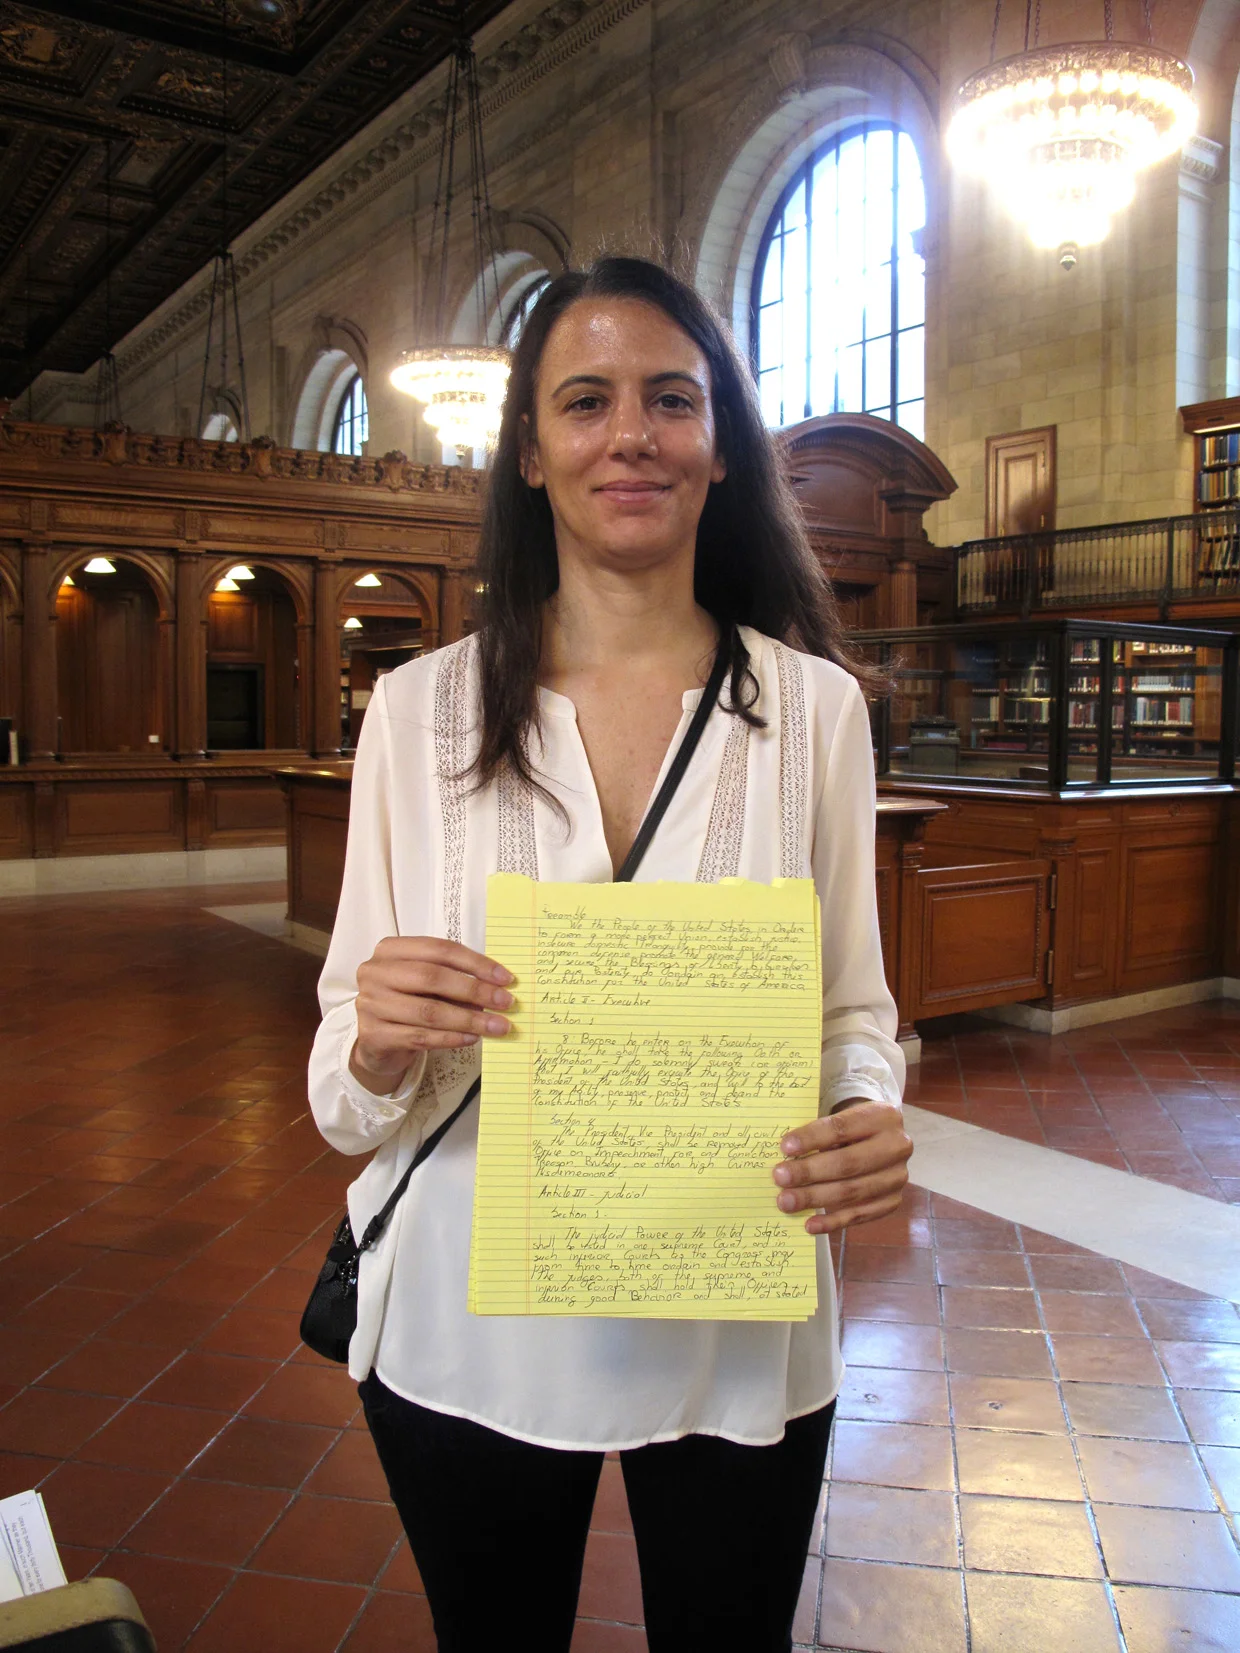 Preamble
We the People of the United States in Order
to form a more perfect Union, establish justice,
insecure domestic Tranquility, provide for the
common defense promote the general Welfare,
and secure the Blessings of Liberty to ourselves
and our Posterity do Ordain an establish this
Constitution for the United States of America
Article II - Executive
Section 1
8. Before he enter on the Execution of
his Office he shall take the following Oath or
Affirmation - I do solemnly swear (or affirm)
that I will faithfully execute the Office of the
President of the United States, and will to the best
of my Ability, preserve, protect and defend the
Constitution of the United States
Section 4
The President, Vice President and all civil
of the United States, shall be removed from
Office on Impeachment for, and Conviction
Treason, Bribery, or other high Crimes
Misdemeanors.
Article III - judicial
Section 1 -
The judicial Power of the United States,
shall be vested in one supreme Court, and in
such inferior Courts as the Congress may
from time to time ordain and establish.
The judges, both of the supreme and
inferior Courts shall hold their Offices
during good Behavior and shall, at stated